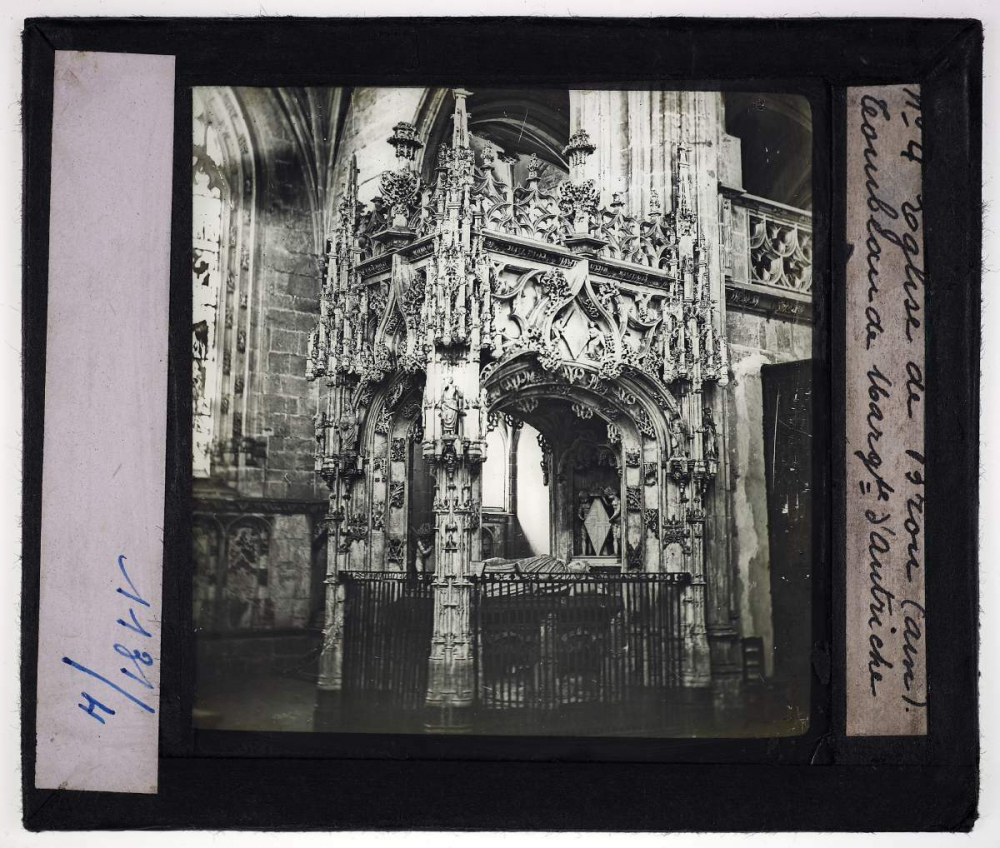 N° 4 Eglise de Brou (ain).
Tombeau de Marg^te d'autriche
H/1811